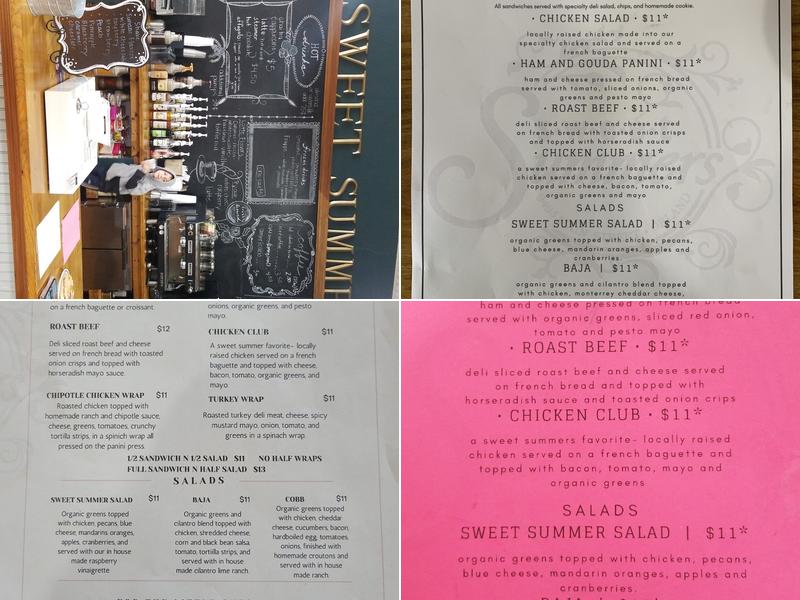 SWEET SUMME
HOT
drinks
Frozen drinks
Coffee
All sandwiches served with specialty deli salad, chips, and homemade cookie.
· CHICKEN SALAD · $11*
locally raised chicken made into our
specialty chicken salad and served on a
french baguette
· HAM AND GOUDA PANINI · $11*
ham and cheese pressed on french bread
served with tomato, sliced onions, organic
greens and pesto mayo
· ROAST BEEF · $11*
deli sliced roast beef and cheese served
on french bread with toasted onion crisps
and topped with horseradish sauce
· CHICKEN CLUB · $11*
a sweet summers favorite- locally raised
chicken served on a french baguette and
topped with cheese, bacon, tomato,
organic greens and mayo
SALADS
SWEET SUMMER SALAD | $11*
organic greens topped with chicken, pecans,
blue cheese, mandarin oranges, apples and
cranberries.
BAJA | $11*
organic greens and cilantro blend topped
with chicken, monterrey cheddar cheese,
on a french baguette or croissant.
ROAST BEEF $12
Deli sliced roast beef and cheese
served on french bread with toasted
onion crisps and topped with
horseradish mayo sauce.
CHIPOTLE CHICKEN WRAP $11
Roasted chicken topped with
homemade ranch and chipotle sauce,
cheese, greens, tomatoes, crunchy
tortilla strips, in a spinich wrap all
pressed on the panini press.
onions, organic greens, and pesto
mayo.
CHICKEN CLUB $11
A sweet summer favorite- locally
raised chicken served on a french
baguette and topped with cheese,
bacon, tomato, organic greens, and
mayo.
TURKEY WRAP $11
Roasted turkey deli meat, cheese, spicy
mustard mayo, onion, tomato, and
greens in a spinach wrap.
1/2 SANDWICH N 1/2 SALAD $11 NO HALF WRAPS
FULL SANDWICH N HALF SALAD $13
SALADS
SWEET SUMMER SALAD $11
Organic greens topped
with chicken, pecans, blue
cheese, mandarins oranges,
apples, cranberries, and
served with our in house
made raspberry
vinaigrette.
BAJA $11
Organic greens and
cilantro blend topped with
chicken, shredded cheese,
corn and black bean salsa,
tomato, tortilla strips, and
served with in house
made cilantro lime ranch.
COBB $11
Organic greens topped
with chicken, cheddar
cheese, cucumbers, bacon,
hardboiled egg, tomatoes,
onions, finished with
homemade croutons and
served with in house
made ranch.
ham and cheese pressed on french bread
served with organic greens, sliced red onion,
tomato and pesto mayo
· ROAST BEEF · $11*
deli sliced roast beef and cheese served
on french bread and topped with
horseradish sauce and toasted onion crips
· CHICKEN CLUB · $11*
a sweet summers favorite- locally raised
chicken served on a french baguette and
topped with bacon, tomato, mayo and
organic greens
SALADS
SWEET SUMMER SALAD | $11*
organic greens topped with chicken, pecans,
blue cheese, mandarin oranges, apples and
cranberries.